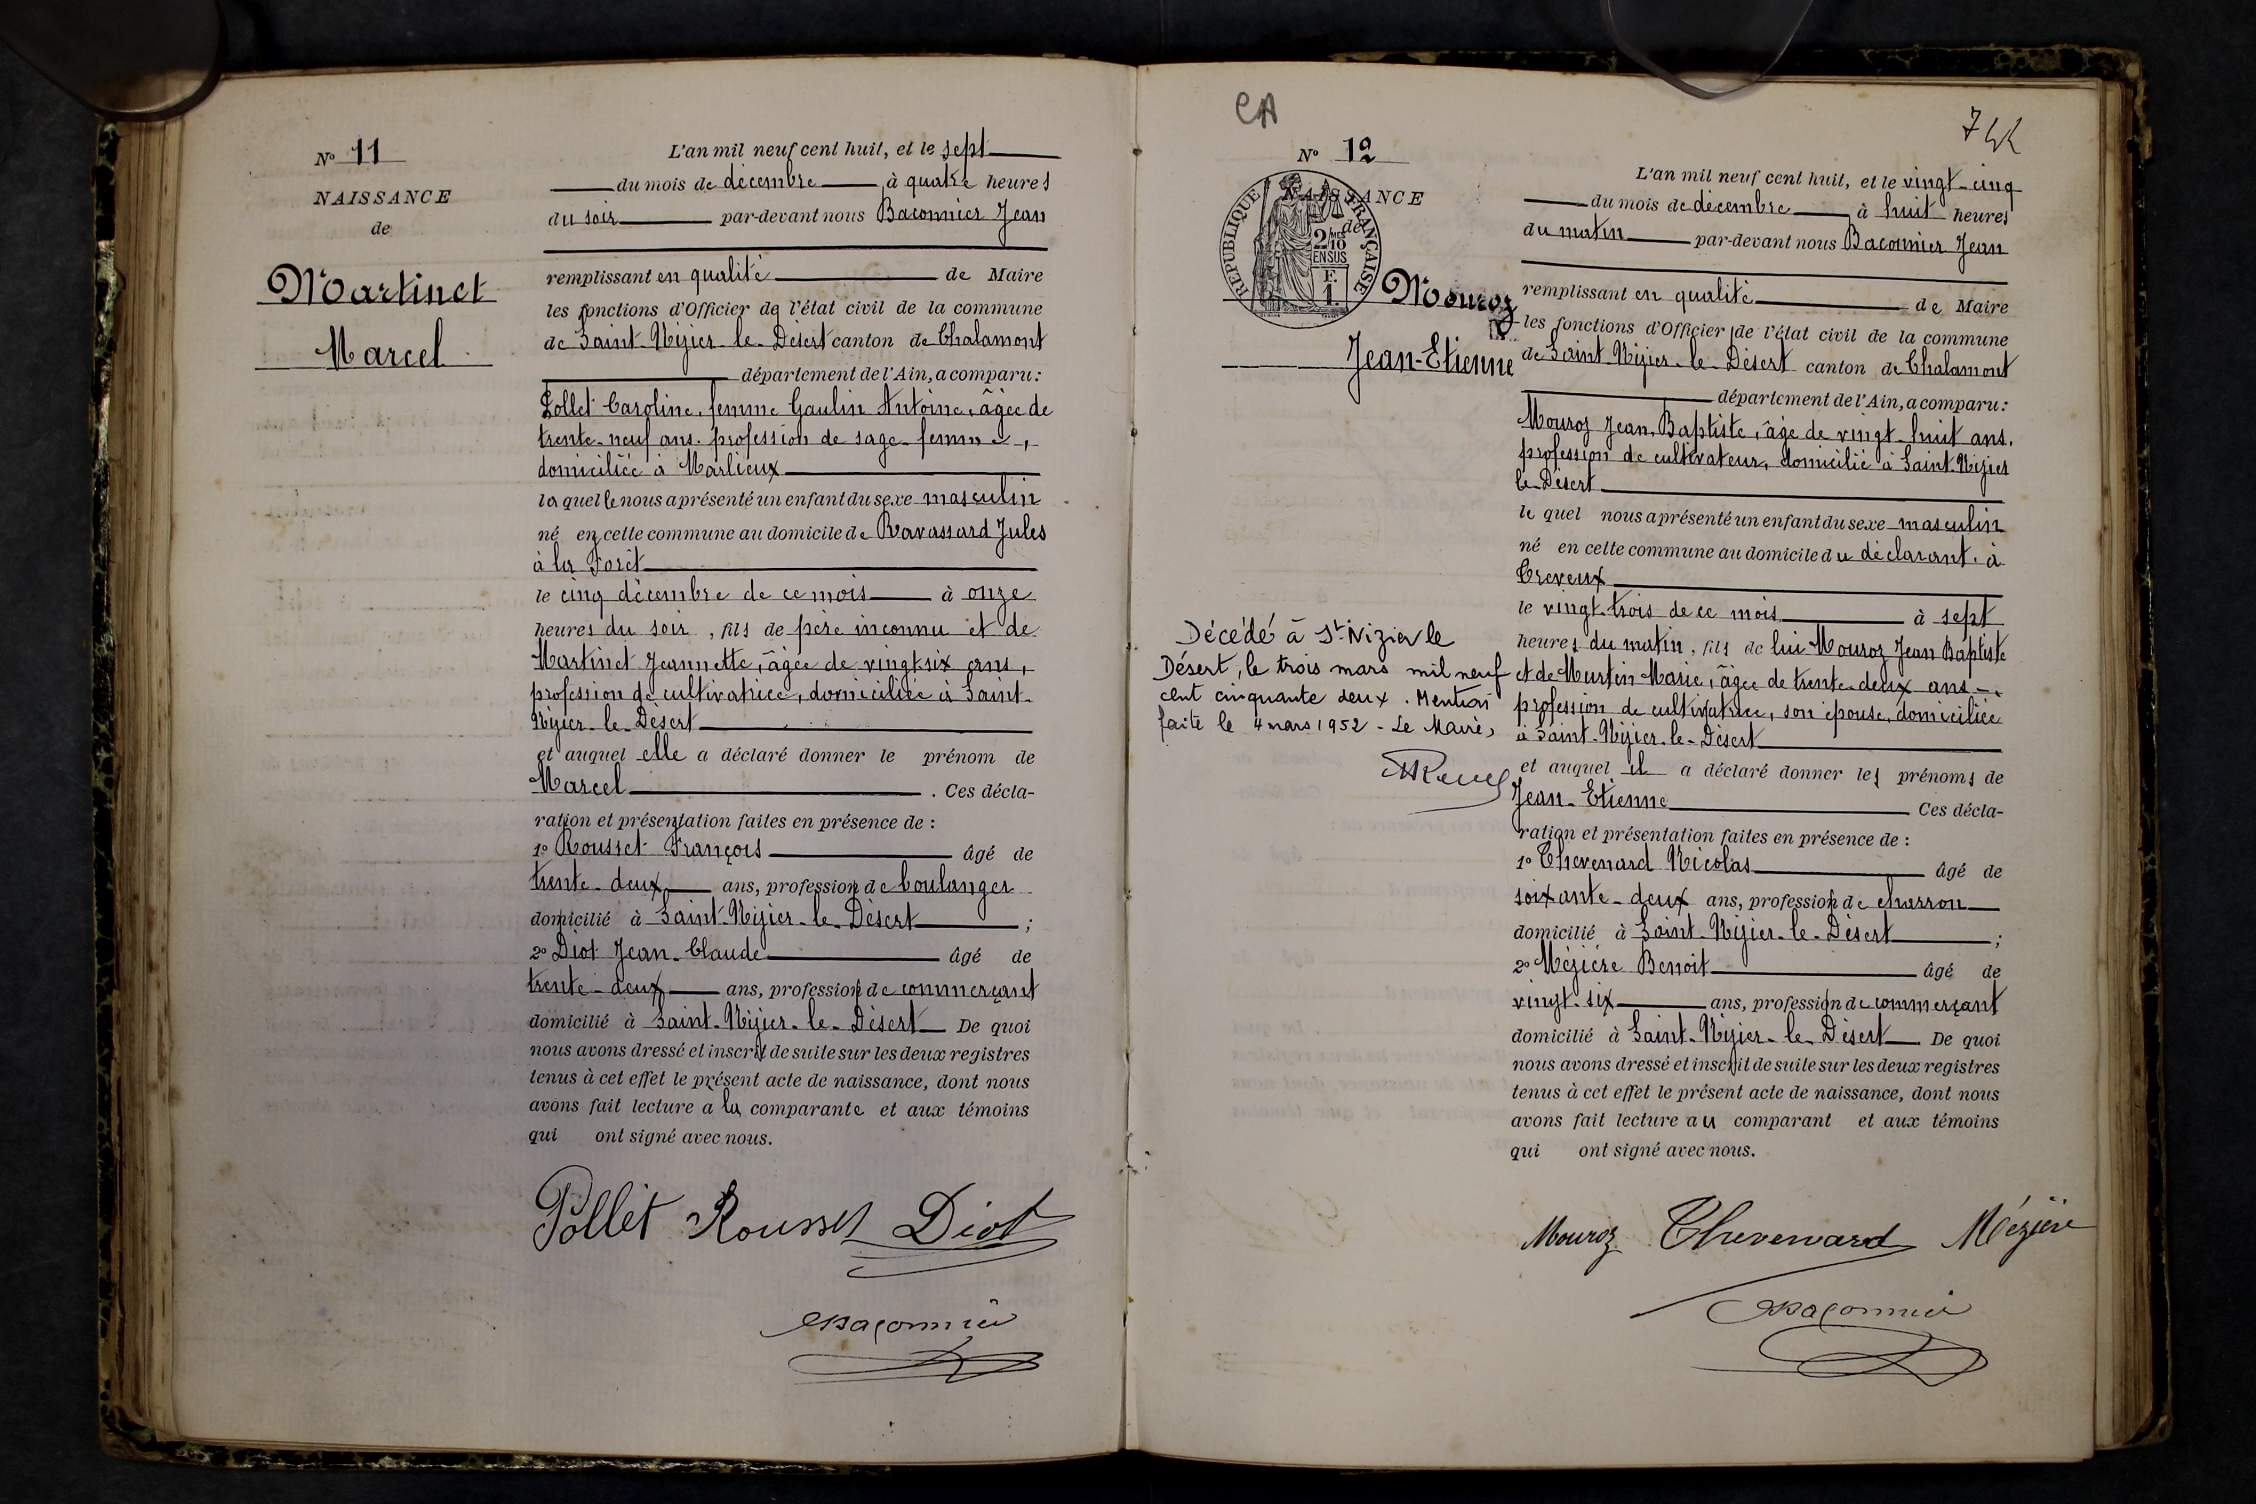 Nº 11
NAISSANCE
de
Martinet
Marcel
L'an mil neuf cent huit, et le sept
du mois de décembre à quatre heures
du soir par-devant nous Baconnier Jean
remplissant en qualité de Maire
les fonctions d'Officier de l'état civil de la commune
de Saint-Nizier-le-Désert canton de Chalamont
département de l'Ain, a comparu:
Pollet Caroline, femme Gaulin Antoine, âgée de
trente-neuf ans, profession de sage-femme,
domiciliée à Marlieux
laquelle nous a présenté un enfant du sexe masculin
né en cette commune au domicile de Ravassard Jules
à la Forêt
le cinq décembre de ce mois à onze
heures du soir, fils de père inconnu et de
Martinet Jeannette, âgée de vingt-six ans,
profession de cultivatrice, domiciliée à Saint-
Nizier-le-Désert
et auquel elle a déclaré donner le prénom de
Marcel . Ces décla-
ration et présentation faites en présence de :
1º Rousset François âgé de
trente-deux ans, profession de boulanger
domicilié à Saint-Nizier-le-Désert ;
2º Diot Jean-Claude âgé de
trente-deux ans, profession de commerçant
domicilié à Saint-Nizier-le-Désert De quoi
nous avons dressé et inscrit de suite sur les deux registres
tenus à cet effet le présent acte de naissance, dont nous
avons fait lecture a la comparante et aux témoins
qui ont signé avec nous.
Pollet Rousset Diot
Baconnier
CA
742
Nº 12
NAISSANCE
de
REPUBLIQUE FRANÇAISE
2/10 MES
EN SUS
F.
1.
Mouroz
Jean-Etienne
L'an mil neuf cent huit, et le vingt-cinq
du mois de décembre à huit heures
du matin par-devant nous Baconnier Jean
remplissant en qualité de Maire
les fonctions d'Officier de l'état civil de la commune
de Saint-Nizier-le-Désert canton de Chalamont
département de l'Ain, a comparu:
Mouroz Jean-Baptiste, âgé de vingt-huit ans,
profession de cultivateur, domicilié à Saint-Nizier
le-Désert
lequel nous a présenté un enfant du sexe masculin
né en cette commune au domicile du déclarant, à
Creveux
le vingt-trois de ce mois à sept
heures du matin, fils de lui Mouroz Jean Baptiste
et de Murtin Marie, âgée de trente-deux ans,
profession de cultivatrice, son épouse, domiciliée
à Saint-Nizier-le-Désert
et auquel il a déclaré donner les prénoms de
Jean-Etienne Ces décla-
ration et présentation faites en présence de :
1º Thevenard Nicolas âgé de
soixante-deux ans, profession de charron
domicilié à Saint-Nizier-le-Désert ;
2º Mézière Benoit âgé de
vingt-six ans, profession de commerçant
domicilié à Saint-Nizier-le-Désert De quoi
nous avons dressé et inscrit de suite sur les deux registres
tenus à cet effet le présent acte de naissance, dont nous
avons fait lecture au comparant et aux témoins
qui ont signé avec nous.
Décédé à St-Nizier le
Désert, le trois mars mil neuf
cent cinquante deux. Mention
faite le 4 mars 1952 - Le Maire,
Mouroz Thevenard Mézière
Baconnier